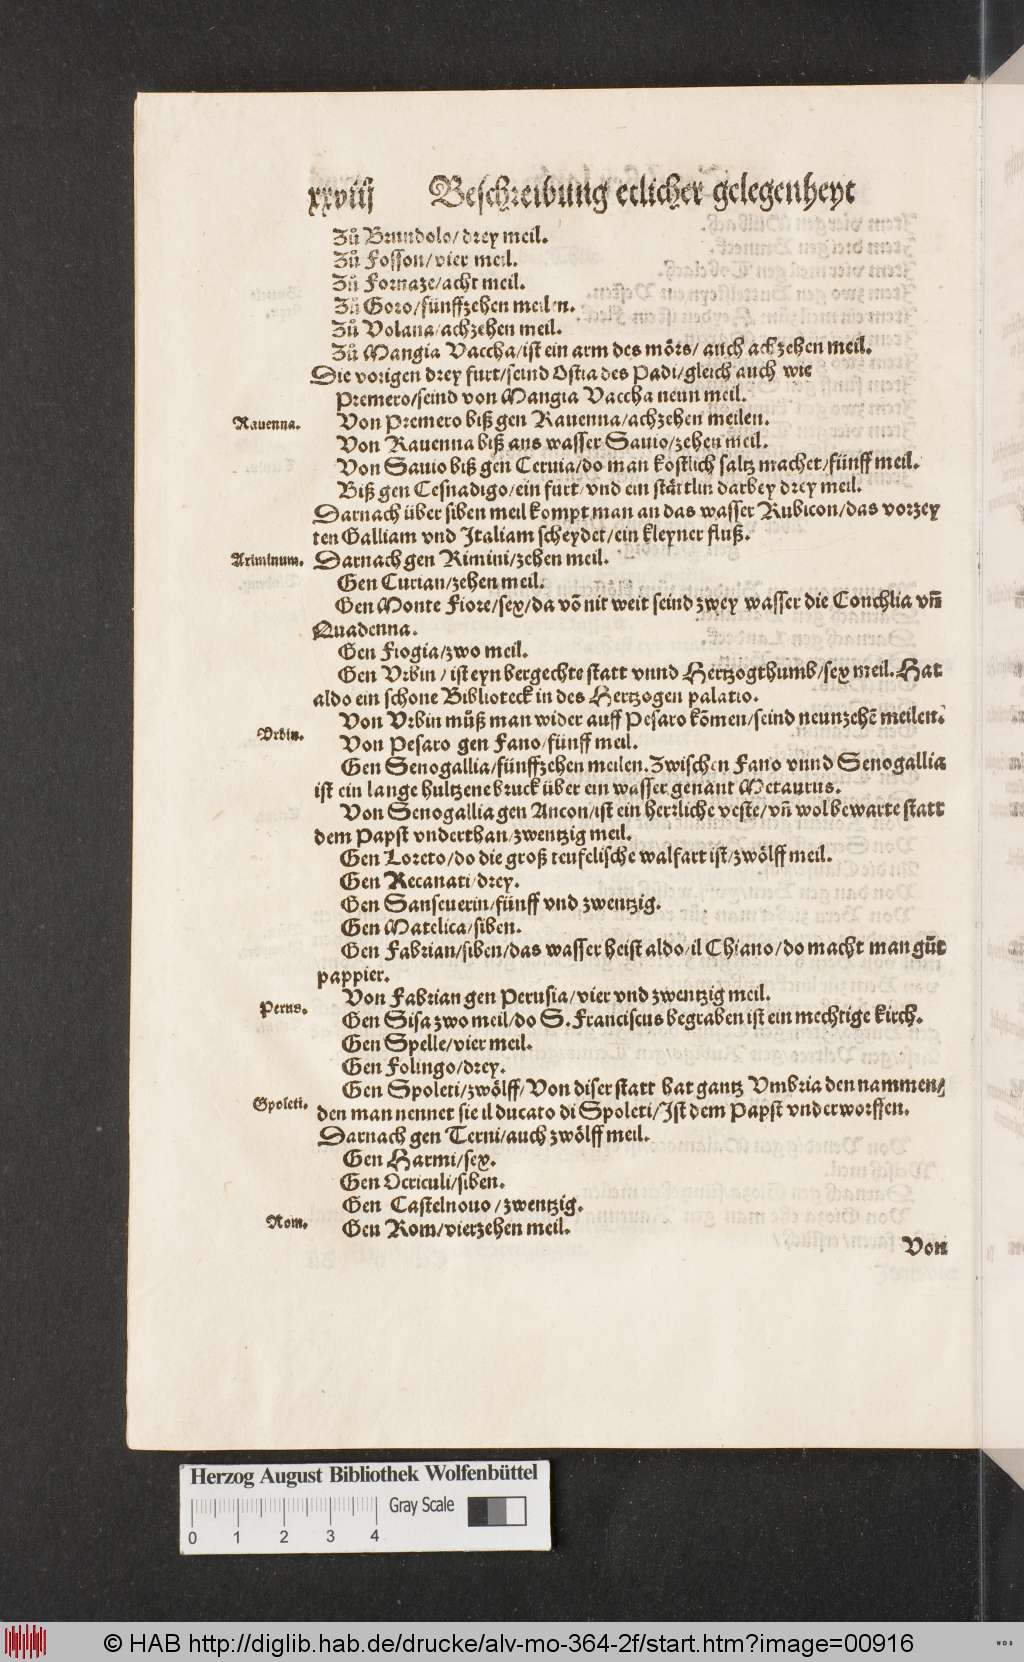 xxviij Beschreibung etlicher gelegenheyt
Zů Brundolo/ drey meil.
Zů Fosson/vier meil.
Zů Fornaze/acht meil.
Zů Goro/fünffzehen meilen.
Zů Volana/achzehen meil.
Zů Mangia Vaccha/ist ein arm des mörs/ auch achzehen meil.
Die vorigen drey furt/seind Ostia des Padi/gleich auch wie
Premero/seind von Mangia Vaccha neun meil.
Rauenna. Von Premero biß gen Rauenna/achzehen meilen.
Von Rauenna biß ans wasser Sauio/zehen meil.
Von Sauio biß gen Ceruia/do man köstlich saltz machet/fünff meil.
Biß gen Cesnadigo/ein furt/vnd ein stättlin darbey drey meil.
Darnach über siben meil kompt man an das wasser Rubicon/das vorzey
ten Galliam vnd Italiam scheydet/ein kleyner fluß.
Ariminum. Darnach gen Rimini/zehen meil.
Gen Curian/zehen meil.
Gen Monte Fiore/sex/da võ nit weit seind zwey wasser die Conchlia vñ
Quadenna.
Gen Fiogia/zwo meil.
Gen Vrbin/ ist eyn bergechte statt vnnd Hertzogthumb/sex meil. Hat
aldo ein schone Biblioteck in des Hertzogen palatio.
Von Vrbin můß man wider auff Pesaro kõmen/seind neunzehẽ meilen.
Vrbin. Von Pesaro gen Fano/fünff meil.
Gen Senogallia/fünffzehen meilen. Zwischen Fano vnnd Senogallia
ist ein lange hultzene bruck über ein wasser genant Metaurus.
Von Senogallia gen Ancon/ist ein herrliche veste/vñ wol bewarte statt
dem Papst vnderthan/zwentzig meil.
Gen Loreto/do die groß teufelische walfart ist/zwölff meil.
Gen Recanati/drey.
Gen Sanseuerin/fünff vnd zwentzig.
Gen Matelica/siben.
Gen Fabrian/siben/das wasser heist aldo/il Chiano/do macht man gůt
pappier.
Von Fabrian gen Perusia/vier vnd zwentzig meil.
Perus. Gen Sisa zwo meil/do S. Franciscus begraben ist ein mechtige kirch.
Gen Spelle/vier meil.
Gen Folingo/drey.
Gen Spoleti/zwölff/Von diser statt hat gantz Vmbria den nammen/
Spoleti. den man nennet sie il ducato di Spoleti/Ist dem Papst vnderworffen.
Darnach gen Terni/auch zwölff meil.
Gen Harmi/sex.
Gen Ocriculi/siben.
Gen Castelnouo/zwentzig.
Rom. Gen Rom/vierzehen meil.
Von
Herzog August Bibliothek Wolfenbüttel
Gray Scale
0 1 2 3 4
© HAB http://diglib.hab.de/drucke/alv-mo-364-2f/start.htm?image=00916